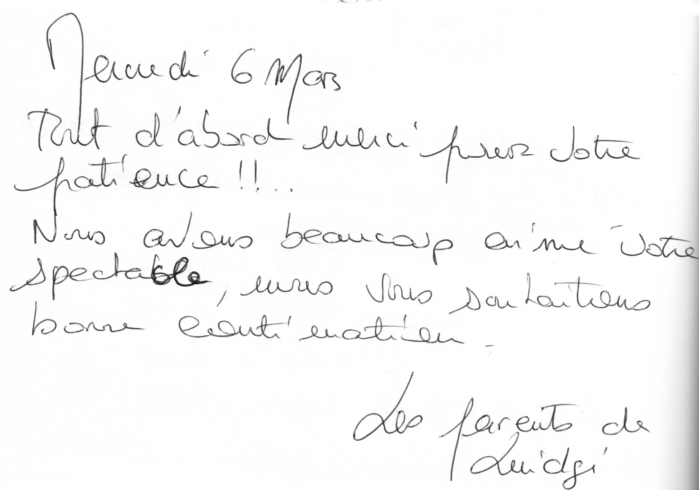 Mercredi 6 Mars
Tout d'abord merci pour votre
patience !!...
Nous avons beaucoup aimé votre
spectacle, nous vous souhaitons
bonne continuation.
Les parents de
Luidgi